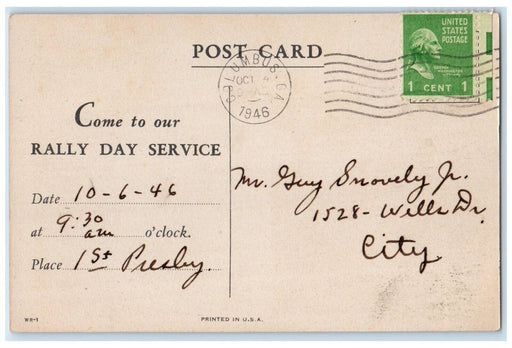 POST CARD
COLUMBUS, GA.
OCT 4
1946
UNITED
STATES
POSTAGE
1 CENT 1
Come to our
RALLY DAY SERVICE
Date 10-6-46
at 9:30 am o'clock.
Place 1st Presby.
Mr. Guy Snavely Jr.
1528- Wells Dr.
City
WR-1
PRINTED IN U.S.A.